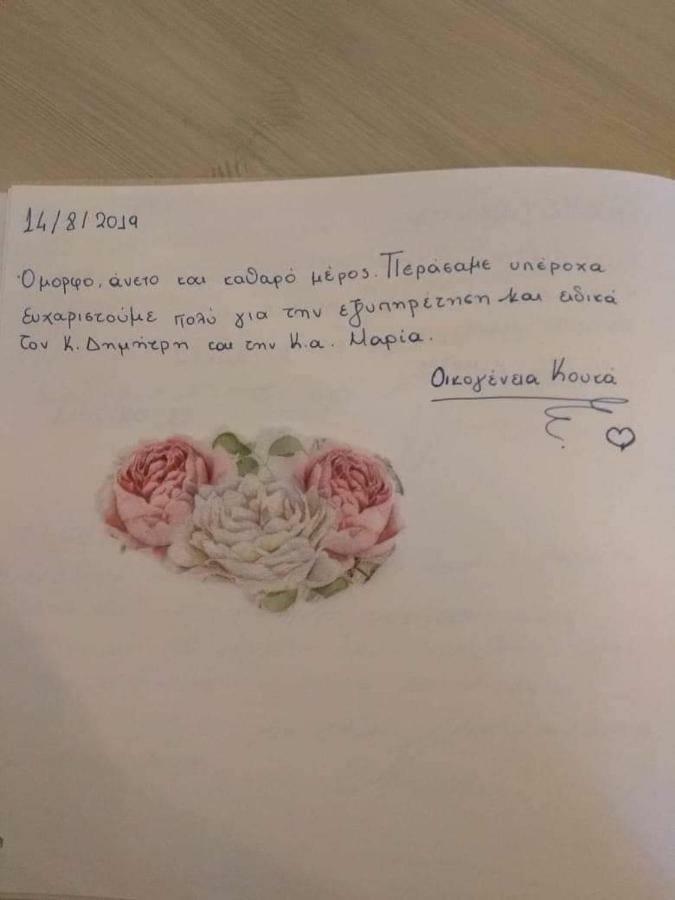 14/8/2019
Όμορφο, άνετο και καθαρό μέρος. Περάσαμε υπέροχα
Ευχαριστούμε πολύ για την εξυπηρέτηση και ειδικά
τον κ. Δημήτρη και την κ.α. Μαρία.
Οικογένεια Κουτά